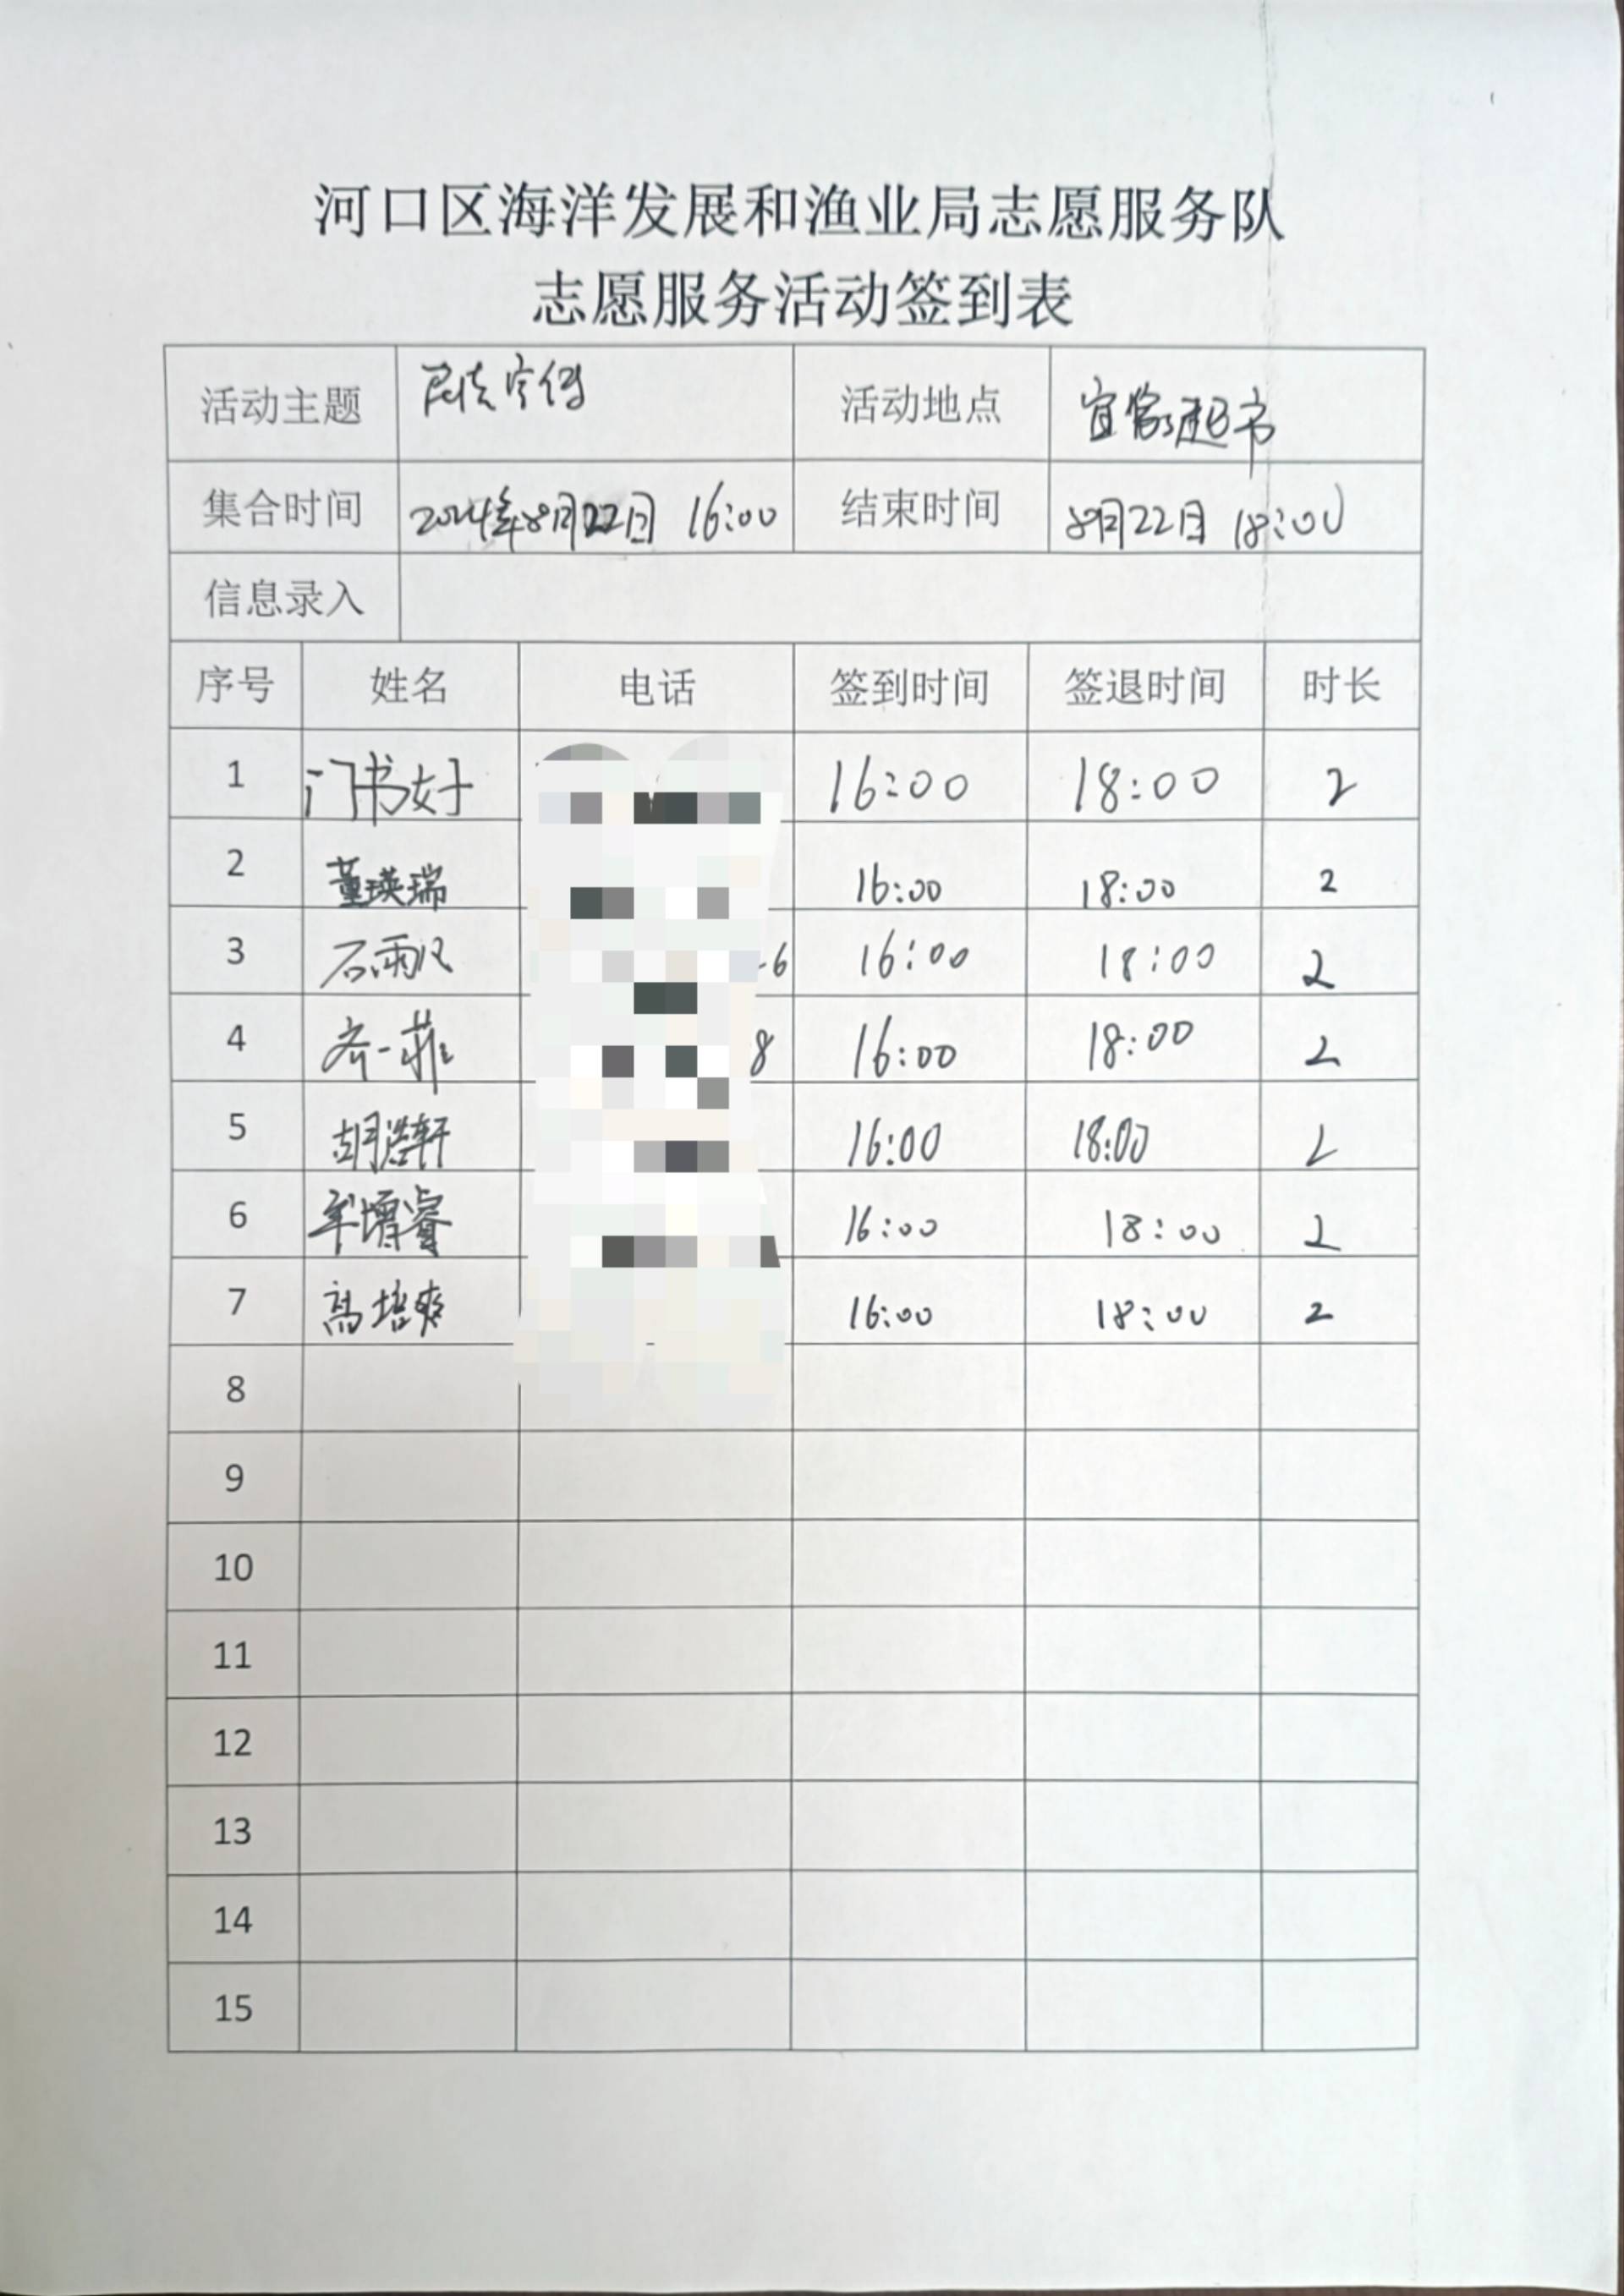 河口区海洋发展和渔业局志愿服务队
志愿服务活动签到表
活动主题 活动地点 宜家超市
集合时间 2024年8月22日 16:00 结束时间 8月22日 18:00
信息录入
序号 姓名 电话 签到时间 签退时间 时长
1 门书好 16:00 18:00 2
2 董瑛瑞 16:00 18:00 2
3 石雨汉 6 16:00 18:00 2
4 齐一菲 8 16:00 18:00 2
5 胡浩轩 16:00 18:00 2
6 牟增睿 16:00 18:00 2
7 高培爽 16:00 18:00 2
8
9
10
11
12
13
14
15